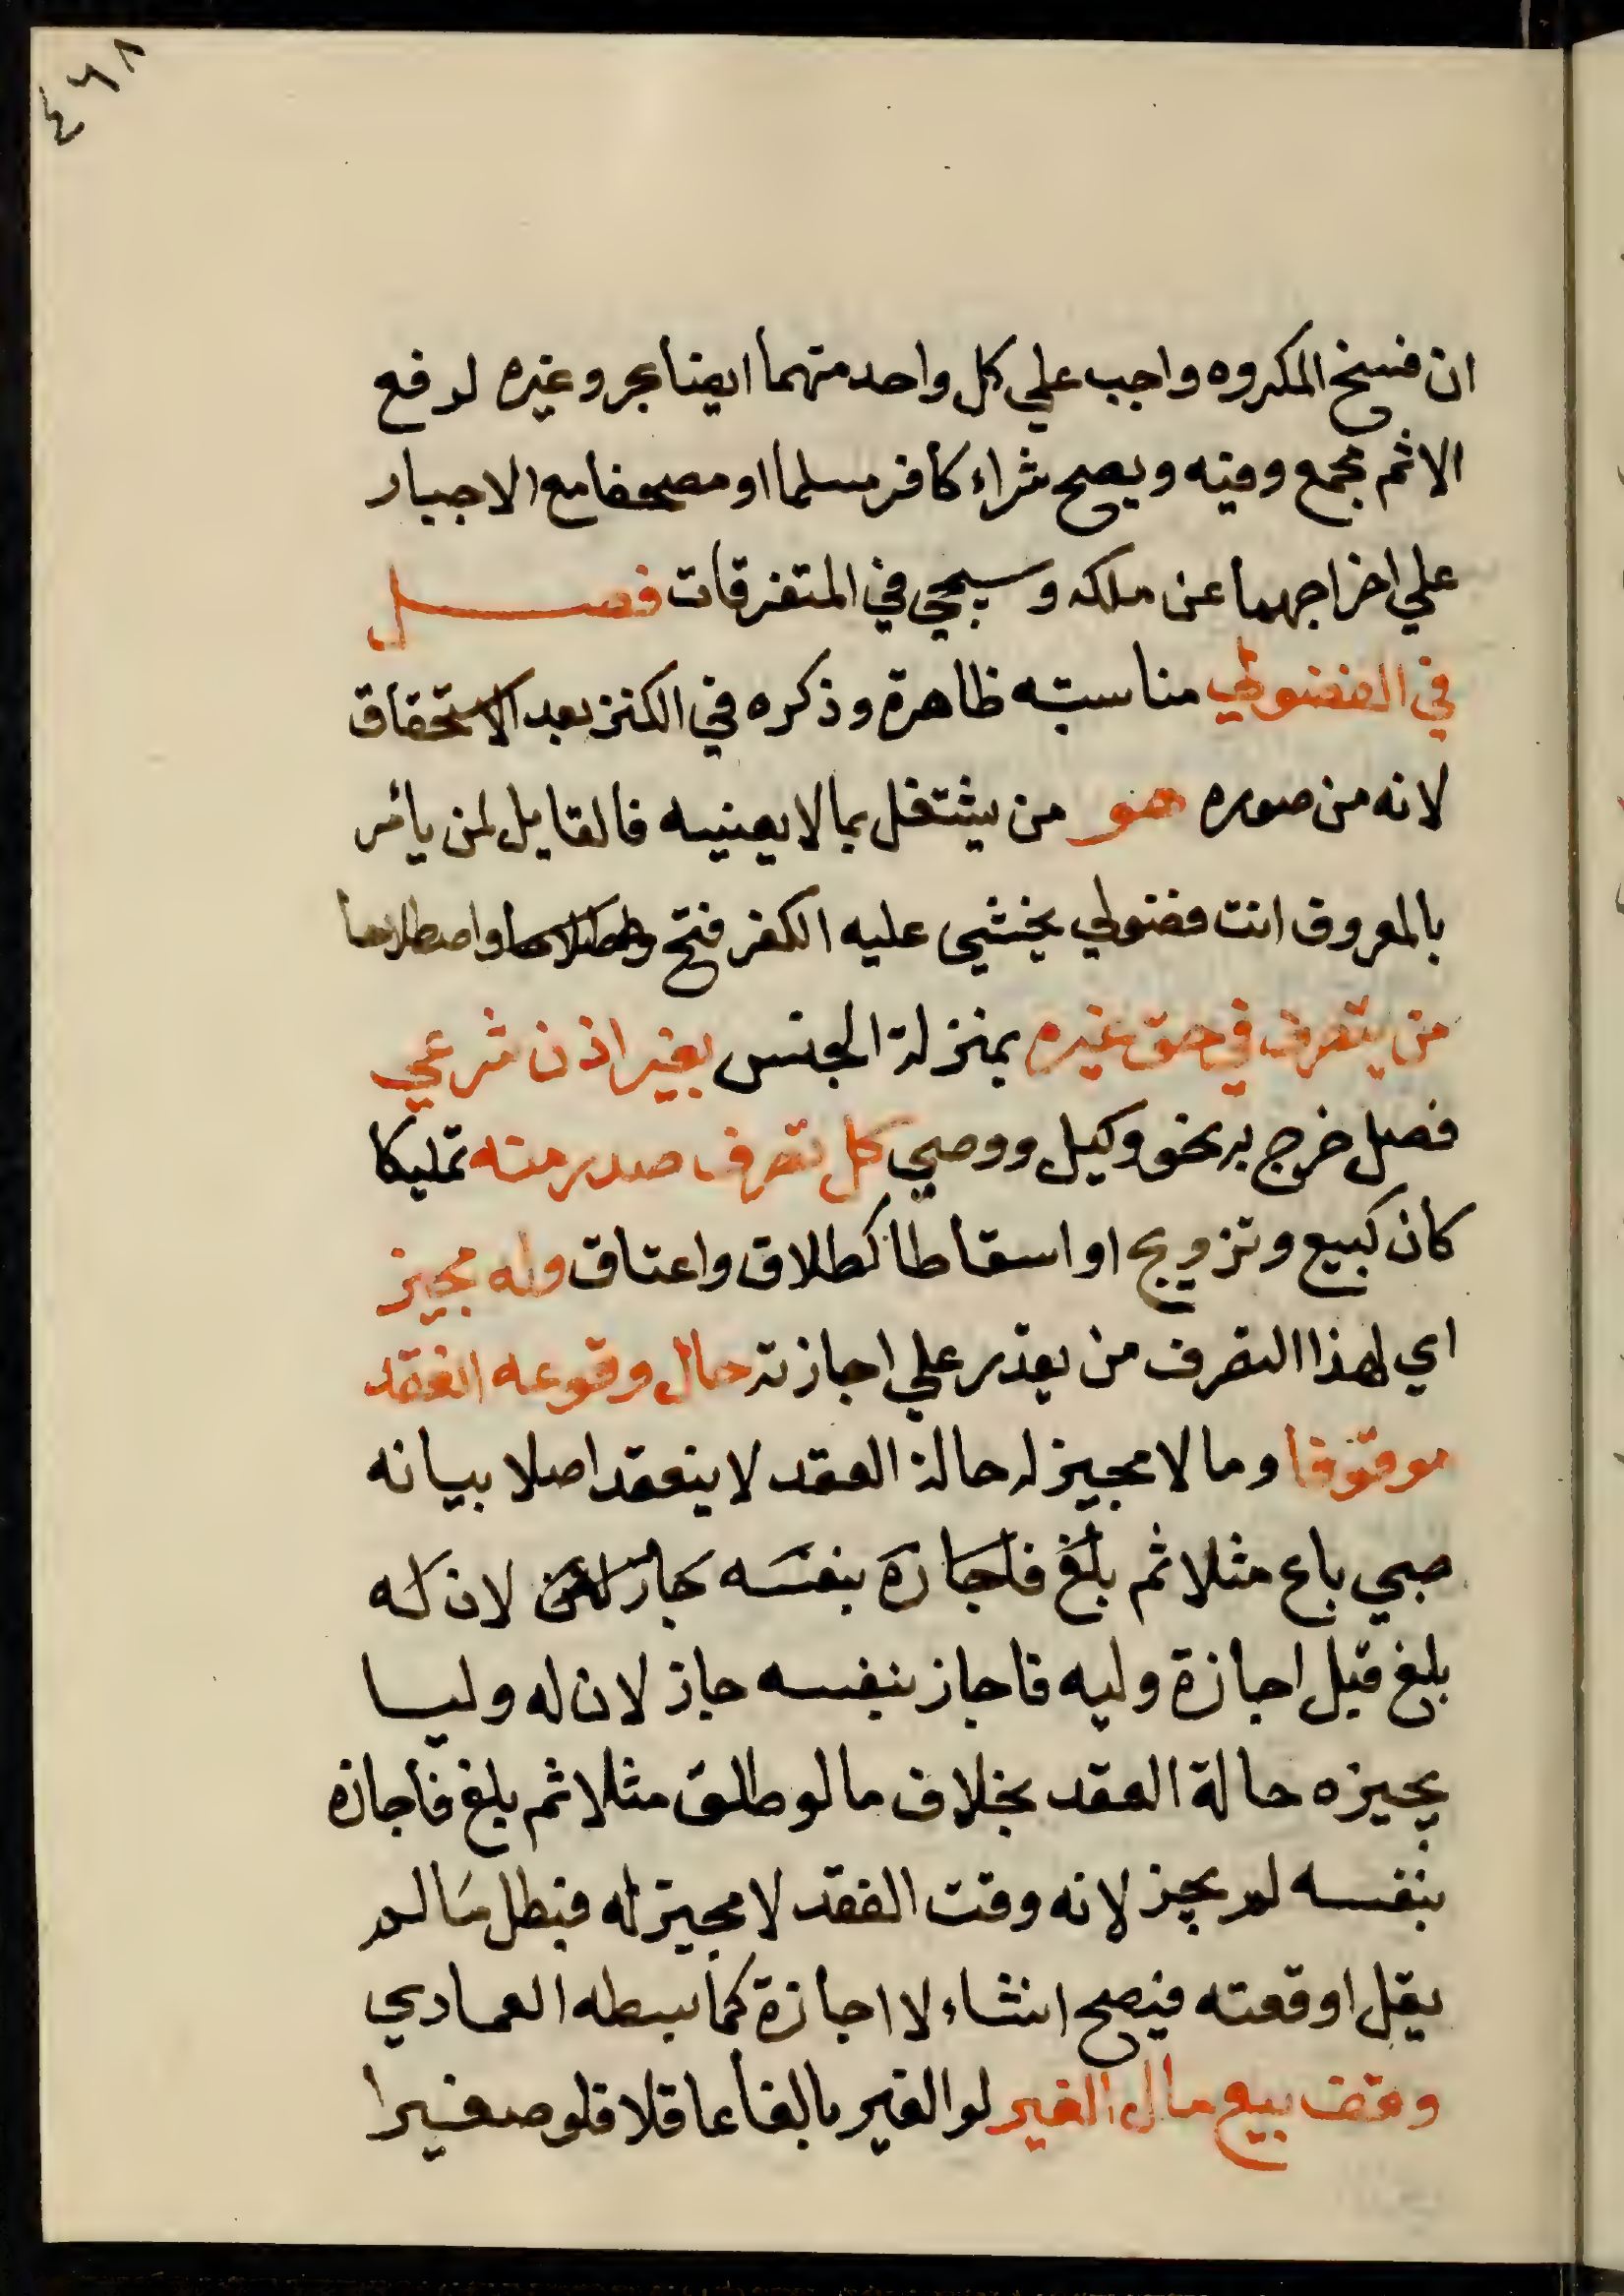 ٤٦٨
ان فسخ المكروه واجب علي كل واحد منهما ايضا بحر وغيره لرفع
الاثم مجمع وفيه ويصح شراء كافر مسلما او مصحفا مع الاجبار
علي اخراجهما عن ملكه وسيجي في المتفرقات فصل
في الفضولي مناسبته ظاهرة وذكره في الكنز بعد الاستحقاق
لانه من صوره هو من يشتغل بما لا يعنيه فالقايل لمن يأمر
بالمعروف انت فضولي يخشي عليه الكفر فتح واصطلاحا
من يتصرف في حق غيره بمنزلة الجنس بغير اذن شرعي
فصل خرج به نحو وكيل ووصي كل تصرف صدر منه تمليكا
كان كبيع وتزويج او اسقاطا كطلاق واعتاق وله مجيز
اي لهذا التصرف من يقدر علي اجازته حال وقوعه انعقد
موقوفا وما لا مجيز له حالة العقد لا ينعقد اصلا بيانه
صبي باع مثلا ثم بلغ فاجازه بنفسه جاز لان له
بلغ قبل اجازة وليه فاجاز بنفسه جاز لان له وليا
يجيزه حالة العقد بخلاف ما لو طلق مثلا ثم بلغ فأجازه
بنفسه لم يجز لانه وقت العقد لا مجيز له فبطل مالم
يقل اوقعته فيصح انشاء لا اجازة كما بسطه العمادي
وقف بيع مال الغير لو الغير بالغا عاقلا فلو صغيرا